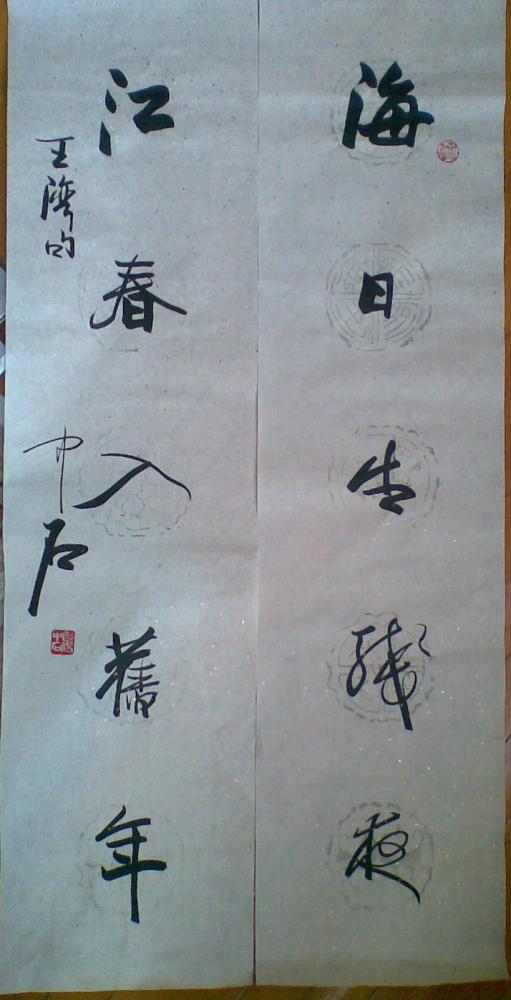 海日生残夜
江春入舊年
王湾句
中石